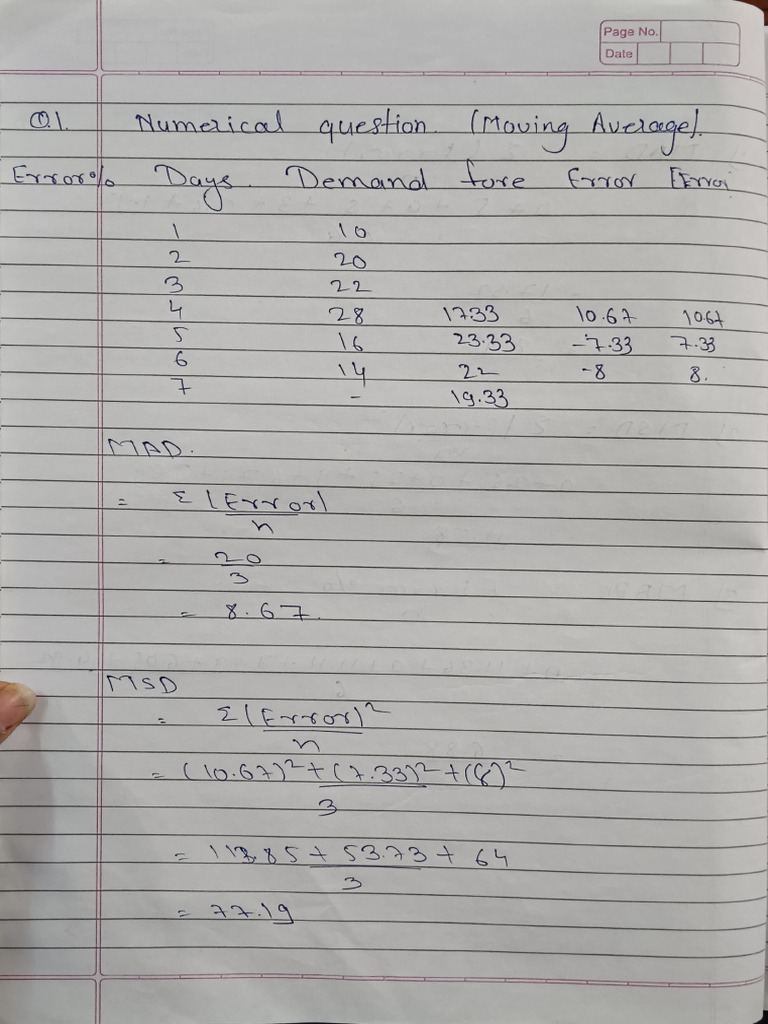 Page No.
Date
Q1. Numerical question. (Moving Average).
Error% Days. Demand fore Error |Error
1 10
2 20
3 22
4 28 17.33 10.67 10.67
5 16 23.33 -7.33 7.33
6 14 22 -8 8.
7 - 19.33
MAD.
= Σ |Error|
n
= 20
3
= 8.67.
MSD
= Σ (Error)²
n
= (10.67)² + (7.33)² + (8)²
3
= 113.85 + 53.73 + 64
3
= 77.19